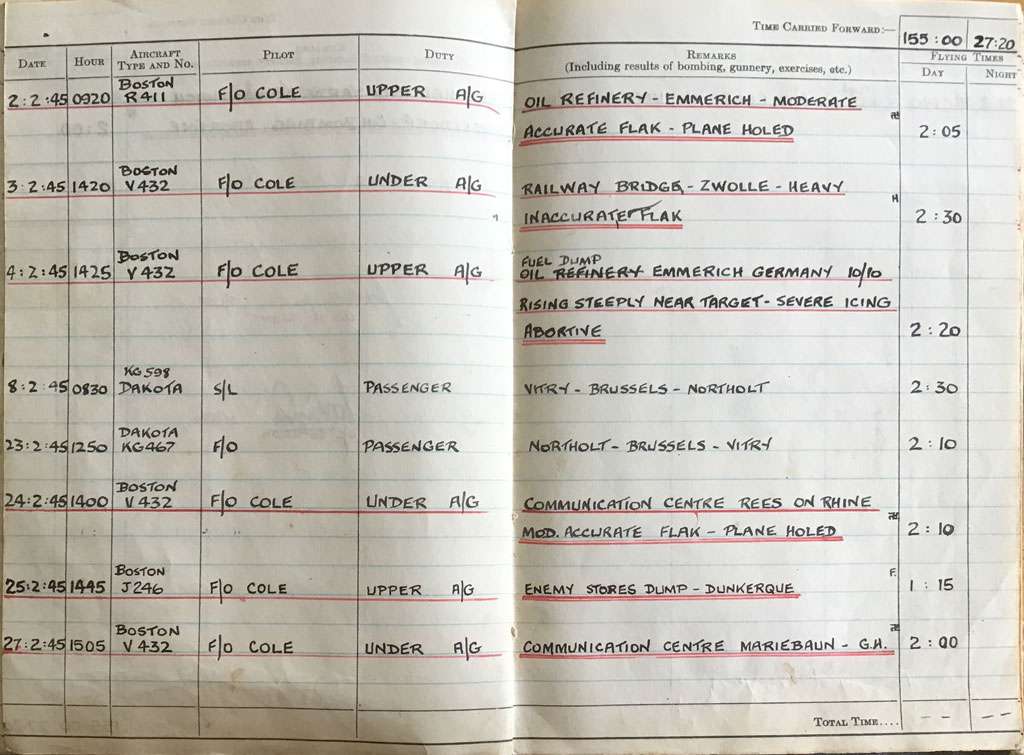 TIME CARRIED FORWARD:— 155:00 27:20
DATE HOUR AIRCRAFT TYPE AND No. PILOT DUTY REMARKS (Including results of bombing, gunnery, exercises, etc.) FLYING TIMES DAY NIGHT
2:2:45 0920 BOSTON R411 F/O COLE UPPER A/G OIL REFINERY - EMMERICH - MODERATE
ACCURATE FLAK - PLANE HOLED 卐 2:05
3:2:45 1420 BOSTON V432 F/O COLE UNDER A/G RAILWAY BRIDGE - ZWOLLE - HEAVY
INACCURATE FLAK H 2:30
4:2:45 1425 BOSTON V432 F/O COLE UPPER A/G FUEL DUMP OIL REFINERY EMMERICH GERMANY 10/10
RISING STEEPLY NEAR TARGET - SEVERE ICING
ABORTIVE 2:20
8:2:45 0830 KG598 DAKOTA S/L PASSENGER VITRY - BRUSSELS - NORTHOLT 2:30
23:2:45 1250 DAKOTA KG467 F/O PASSENGER NORTHOLT - BRUSSELS - VITRY 2:10
24:2:45 1400 BOSTON V432 F/O COLE UNDER A/G COMMUNICATION CENTRE REES ON RHINE
MOD. ACCURATE FLAK - PLANE HOLED 卐 2:10
25:2:45 1445 BOSTON J246 F/O COLE UPPER A/G ENEMY STORES DUMP - DUNKERQUE F. 1:15
27:2:45 1505 BOSTON V432 F/O COLE UNDER A/G COMMUNICATION CENTRE MARIEBAUN - G.H. 卐 2:00
TOTAL TIME.... -- --